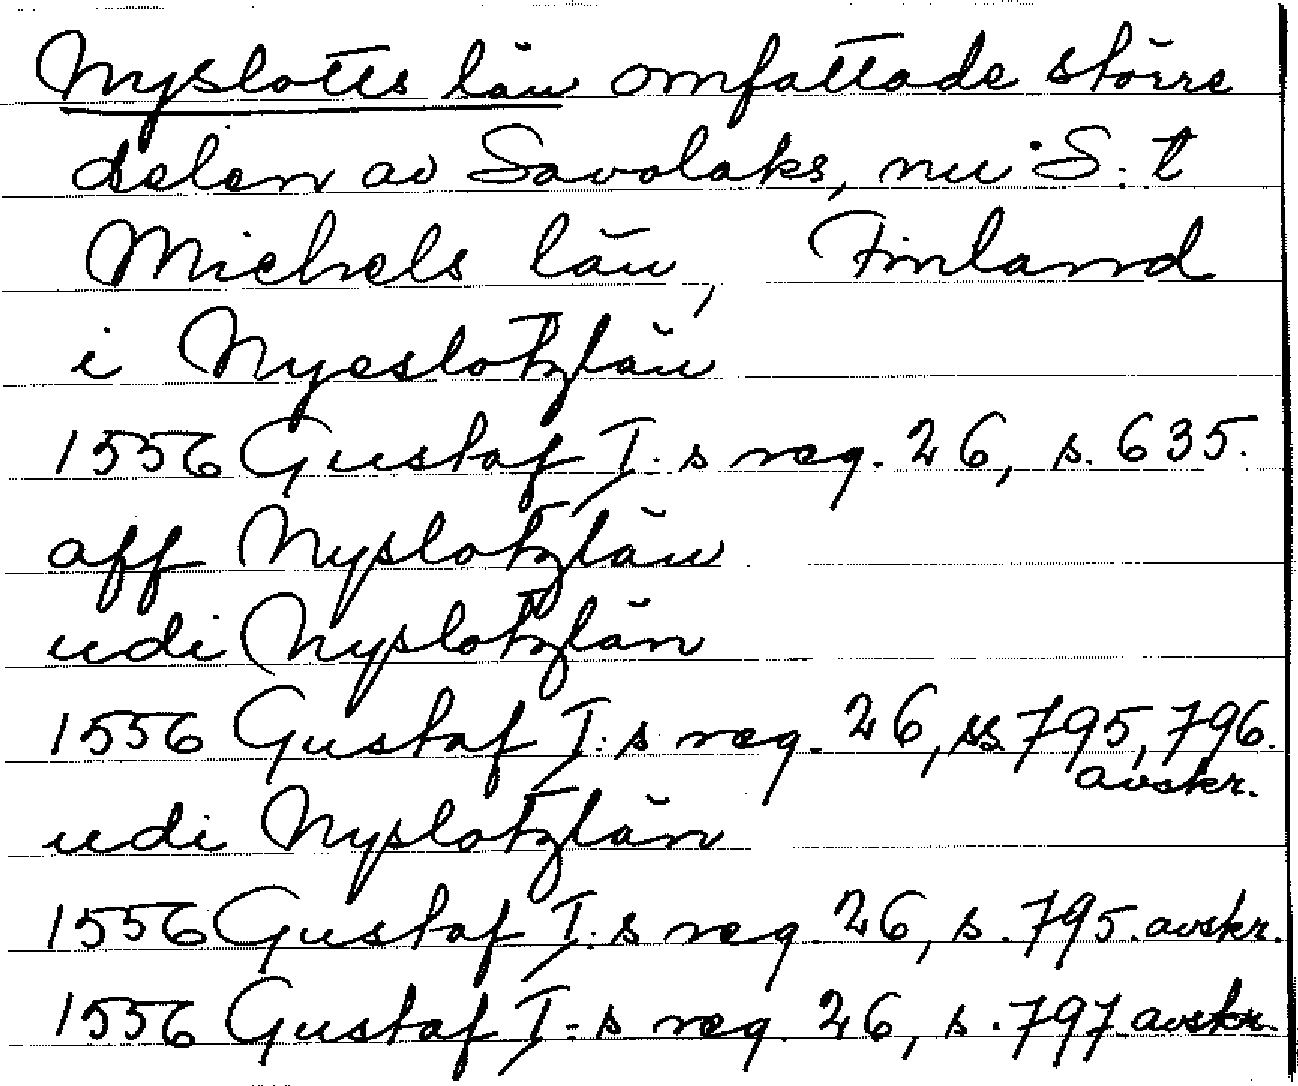 Nyslotts län omfattade större
delen av Savolaks, nu S:t
Michels län, Finland
i Nyeslotzlän
1556 Gustaf I:s reg. 26, s. 635.
aff Nyslotzlän
udi Nyslotzlän
1556 Gustaf I:s reg. 26, ss. 795, 796.
avskr.
udi Nyslotzlän
1556 Gustaf I:s reg. 26, s. 795. avskr.
1556 Gustaf I:s reg. 26, s. 797. avskr.